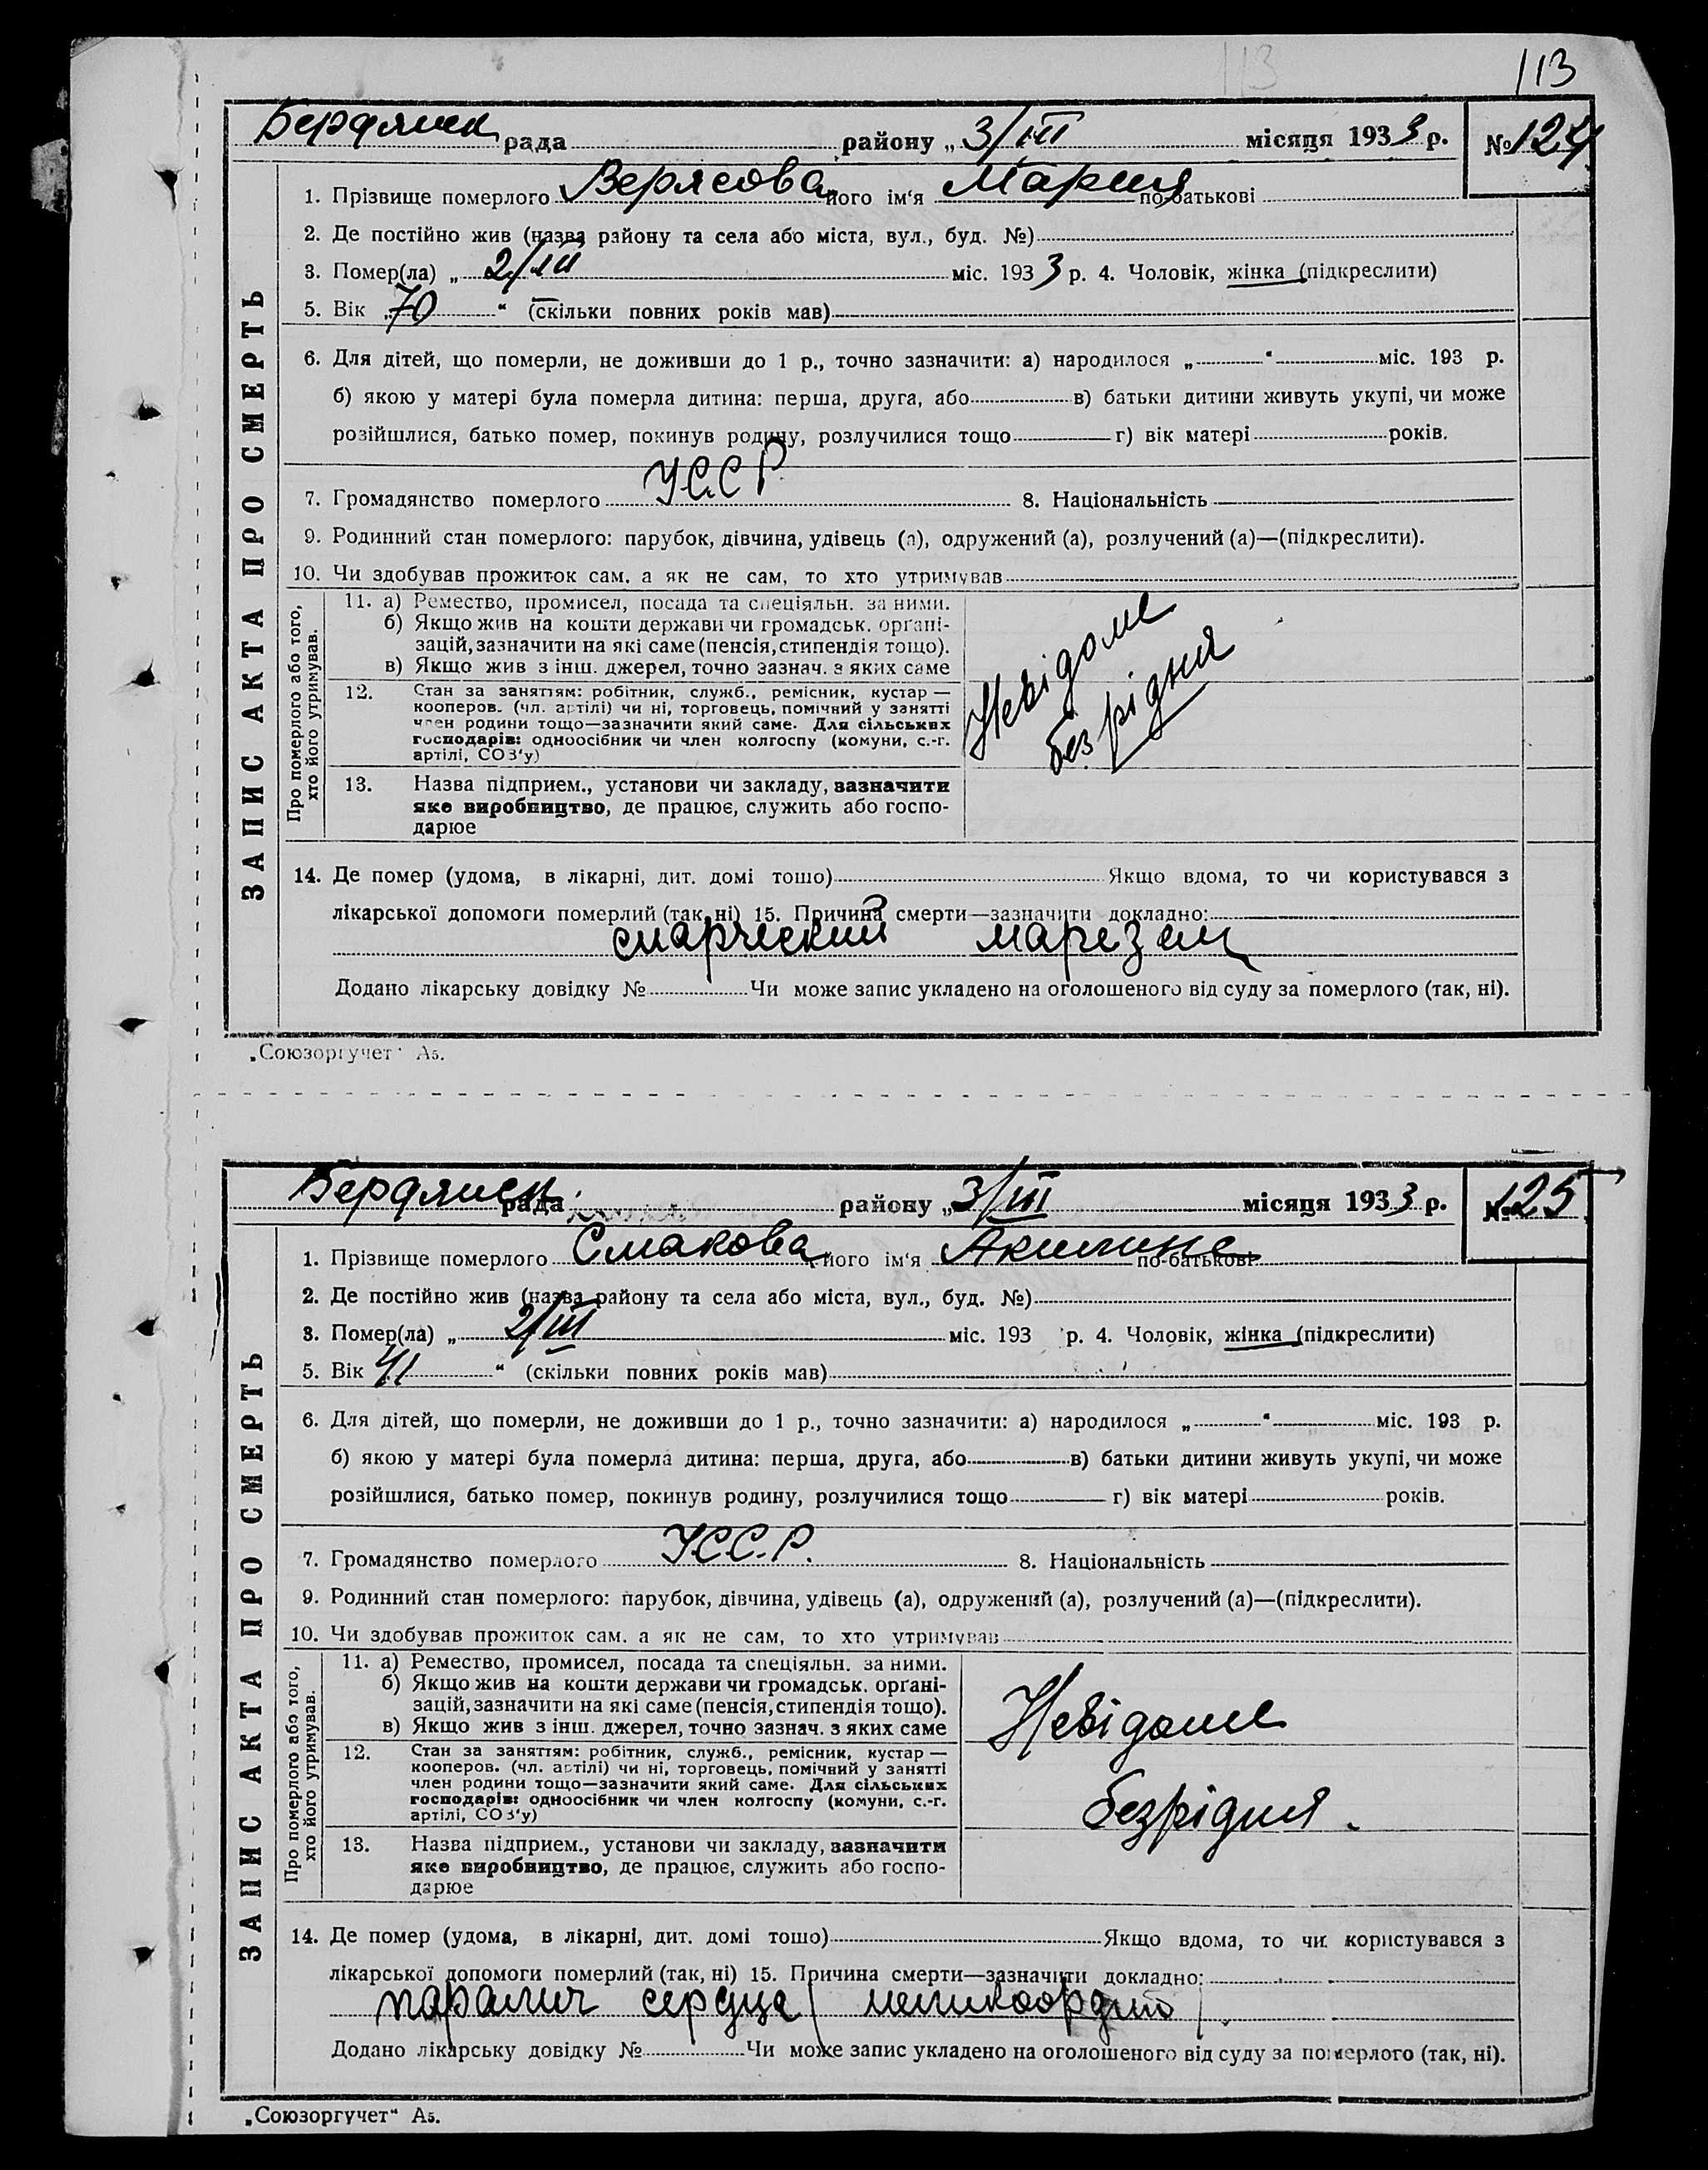 113
113
Бердянск рада района „ 3/III місяця 1933 р. № 124
ЗАПИС АКТА ПРО СМЕРТЬ
1. Прізвище померлого Верясова його ім'я Мария по-батькові
2. Де постійно жив (назва району та села або міста, вул., буд. №)
3. Помер(ла) „ 2/III міс. 193 3 р. 4. Чоловік, жінка (підкреслити)
5. Вік „ 70 “ (скільки повних років мав)
6. Для дітей, що померли, не доживши до 1 р., точно зазначити: а) народилося „ “ міс. 193 р.
б) якою у матері була померла дитина: перша, друга, або в) батьки дитини живуть укупі, чи може
розійшлися, батько помер, покинув родину, розлучилися тощо г) вік матері років.
7. Громадянство померлого УССР 8. Національність
9. Родинний стан померлого: парубок, дівчина, удівець (а), одружений (а), розлучений (а)—(підкреслити).
10. Чи здобував прожиток сам, а як не сам, то хто утримував
Про померлого або того,
хто його утримував.
11. а) Ремество, промисел, посада та спеціяльн. за ними.
б) Якщо жив на кошти держави чи громадськ. орґані-
зацій, зазначити на які саме (пенсія, стипендія тощо).
в) Якщо жив з інш. джерел, точно зазнач. з яких саме
12. Стан за заняттям: робітник, служб., ремісник, кустар —
кооперов. (чл. артілі) чи ні, торговець, помічний у занятті
член родини тощо—зазначити який саме. Для сільських
господарів: одноосібник чи член колгоспу (комуни, с.-г.
артілі, СОЗ'у)
Невідоме
без рідня
13. Назва підприєм., установи чи закладу, зазначити
яке виробництво, де працює, служить або госпо-
дарює
14. Де помер (удома, в лікарні, дит. домі тощо) Якщо вдома, то чи користувався з
лікарської допомоги померлий (так, ні) 15. Причина смерти—зазначити докладно:
старческий маразм
Додано лікарську довідку № Чи може запис укладено на оголошеного від суду за померлого (так, ні).
„Союзоргучет“ А5.
Бердянск рада району „ 3/III місяця 1933 р. № 125
ЗАПИС АКТА ПРО СМЕРТЬ
1. Прізвище померлого його ім'я Акилина по-батькові
2. Де постійно жив (назва району та села або міста, вул., буд. №)
3. Помер(ла) „ 2/III міс. 193 р. 4. Чоловік, жінка (підкреслити)
5. Вік 41 “ (скільки повних років мав)
6. Для дітей, що померли, не доживши до 1 р., точно зазначити: а) народилося „ “ міс. 193 р.
б) якою у матері була померла дитина: перша, друга, або в) батьки дитини живуть укупі, чи може
розійшлися, батько помер, покинув родину, розлучилися тощо г) вік матері років.
7. Громадянство померлого У.С.С.Р. 8. Національність
9. Родинний стан померлого: парубок, дівчина, удівець (а), одружений (а), розлучений (а)—(підкреслити).
10. Чи здобував прожиток сам, а як не сам, то хто утримував
Про померлого або того,
хто його утримував.
11. а) Ремество, промисел, посада та спеціяльн. за ними.
б) Якщо жив на кошти держави чи громадськ. орґані-
зацій, зазначити на які саме (пенсія, стипендія тощо).
в) Якщо жив з інш. джерел, точно зазнач. з яких саме
Невідоме
12. Стан за заняттям: робітник, служб., ремісник, кустар —
кооперов. (чл. артілі) чи ні, торговець, помічний у занятті
член родини тощо—зазначити який саме. Для сільських
господарів: одноосібник чи член колгоспу (комуни, с.-г.
артілі, СОЗ'у)
безрідня.
13. Назва підприєм., установи чи закладу, зазначити
яке виробництво, де працює, служить або госпо-
дарює
14. Де помер (удома, в лікарні, дит. домі тощо) Якщо вдома, то чи користувався з
лікарської допомоги померлий (так, ні) 15. Причина смерти—зазначити докладно:
паралич сердца
Додано лікарську довідку № Чи може запис укладено на оголошеного від суду за померлого (так, ні).
„Союзоргучет“ А5.